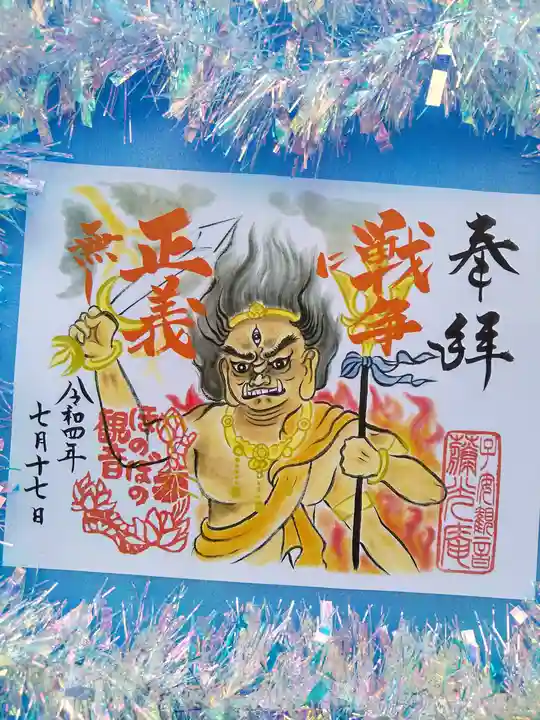 奉拝
戦争に
正義
無し
令和四年
七月十七日
ほのぼの
観音
子安観音
蘭光庵